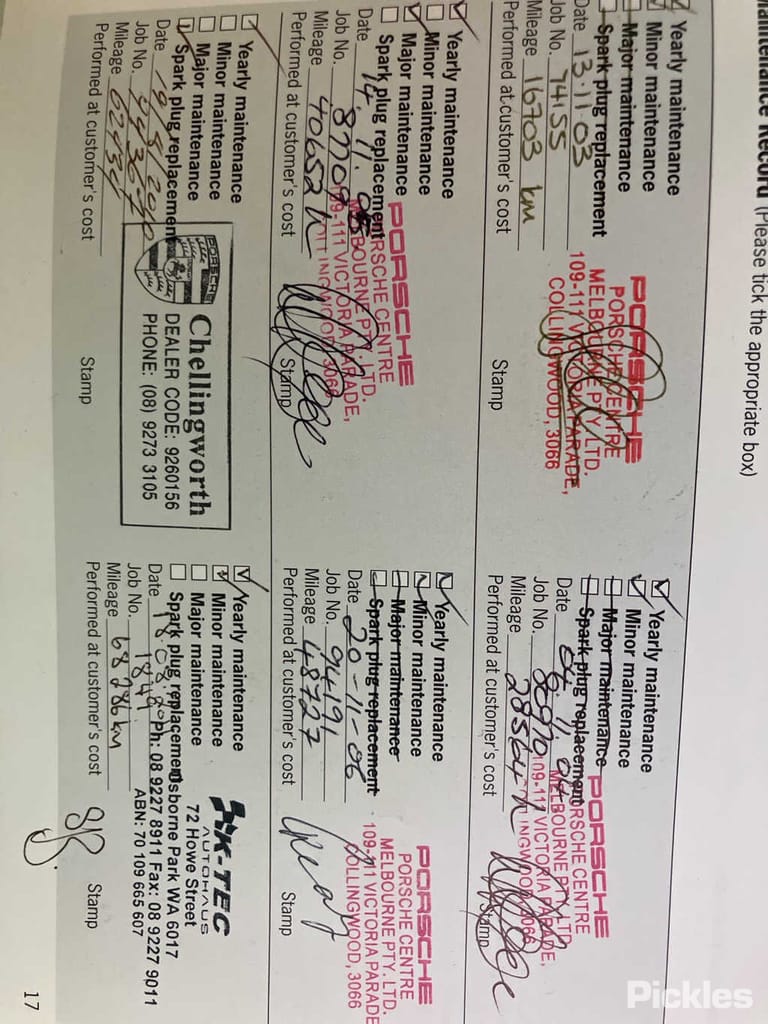 Maintenance Record (Please tick the appropriate box)
Yearly maintenance
Minor maintenance
Major maintenance
Spark plug replacement
Date 13.11.03
Job No. 74155
Mileage 16703 km
Performed at customer's cost
PORSCHE
PORSCHE CENTRE
MELBOURNE PTY. LTD.
109-111 VICTORIA PARADE,
COLLINGWOOD, 3066
Stamp
Yearly maintenance
Minor maintenance
Major maintenance
Spark plug replacement
Date 04 11 04
Job No. 80970
Mileage 28564 k
Performed at customer's cost
PORSCHE
PORSCHE CENTRE
MELBOURNE PTY. LTD.
109-111 VICTORIA PARADE,
COLLINGWOOD, 3066
Stamp
Yearly maintenance
Minor maintenance
Major maintenance
Spark plug replacement
Date 14 11 05
Job No. 87709
Mileage 40652 k
Performed at customer's cost
PORSCHE
PORSCHE CENTRE
MELBOURNE PTY. LTD.
109-111 VICTORIA PARADE,
COLLINGWOOD, 3066
Stamp
Yearly maintenance
Minor maintenance
Major maintenance
Spark plug replacement
Date 20-11-06
Job No. 94191
Mileage 48727
Performed at customer's cost
PORSCHE
PORSCHE CENTRE
MELBOURNE PTY. LTD.
109-111 VICTORIA PARADE
COLLINGWOOD, 3066
Stamp
Yearly maintenance
Minor maintenance
Major maintenance
Spark plug replacement
Date 19/8/2010
Job No.
Mileage 62434
Performed at customer's cost
PORSCHE
Chellingworth
DEALER CODE: 9260156
PHONE: (08) 9273 3105
Stamp
Yearly maintenance
Minor maintenance
Major maintenance
Spark plug replacement
Date
Job No. 1848
Mileage 68286 km
Performed at customer's cost
AUTOHAUS
72 Howe Street
Osborne Park WA 6017
Ph: 08 9227 8911 Fax: 08 9227 9011
ABN: 70 109 665 607
Stamp
17
Pickles